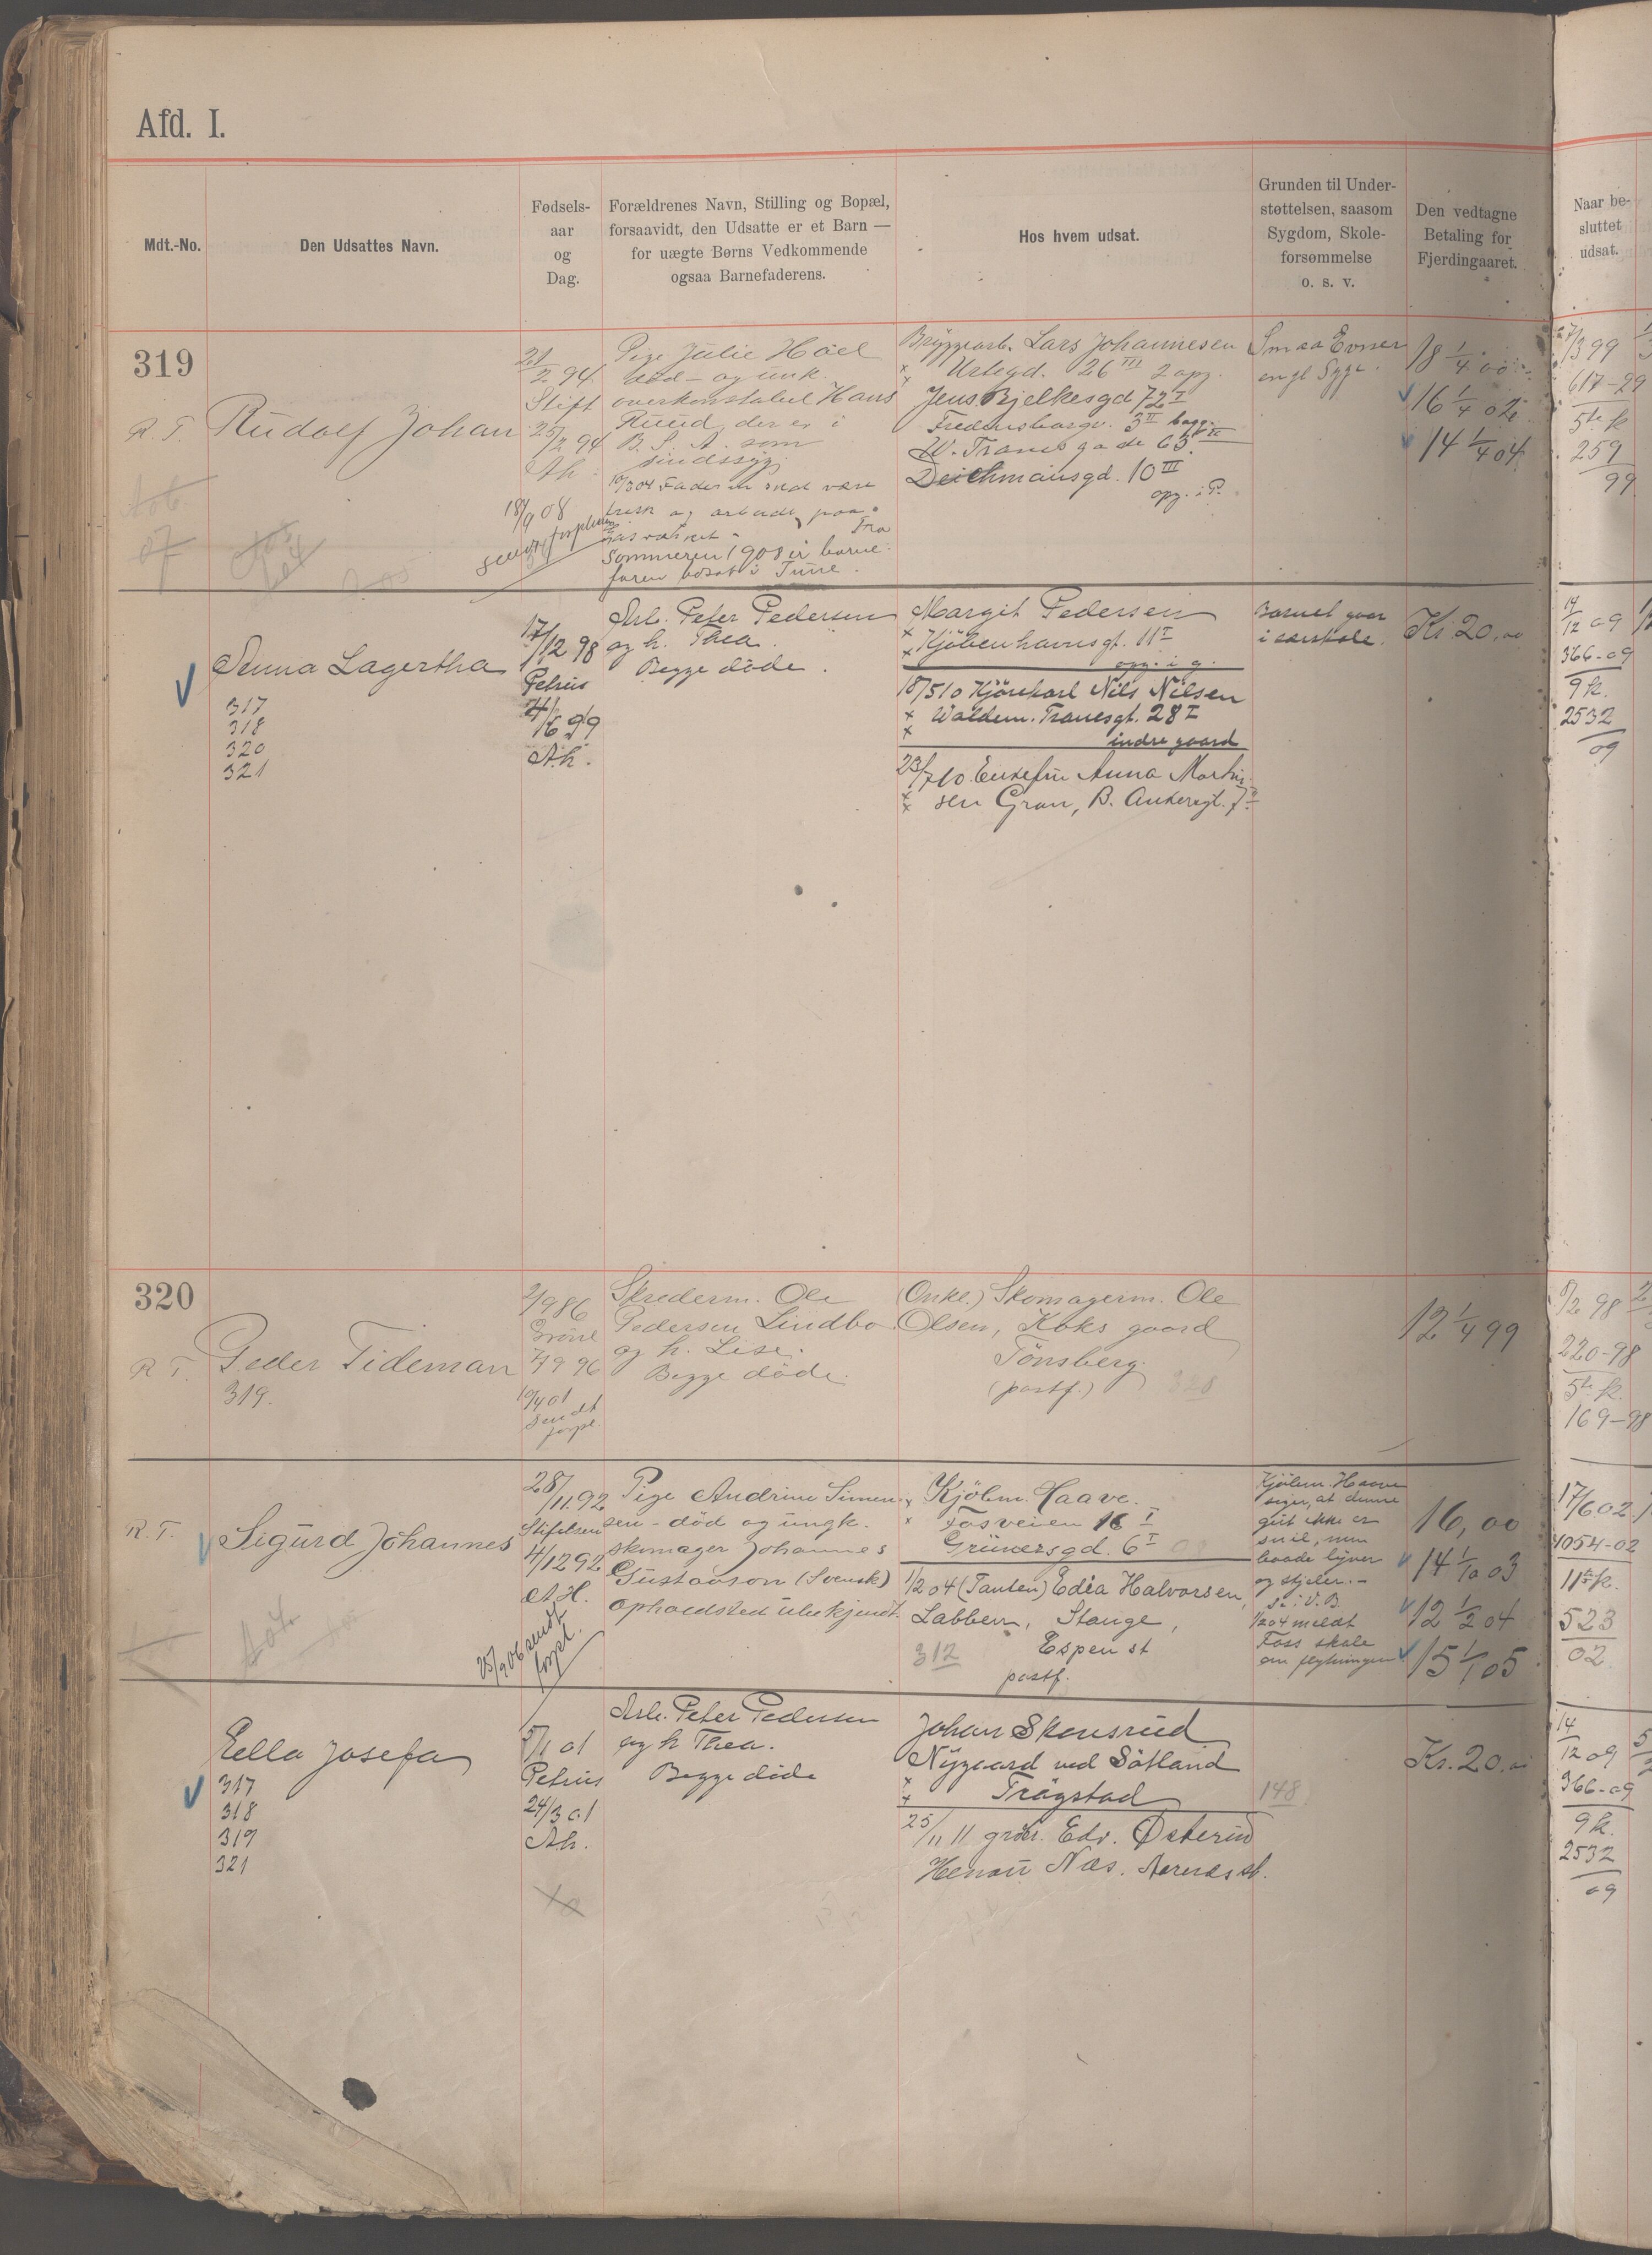 Afd. I.
Mdt.-No.
Den Udsattes Navn.
Fødsels-
aar
og
Dag.
Forældrenes Navn, Stilling og Bopæl,
forsaavidt, den Udsatte er et Barn —
for uægte Børns Vedkommende
ogsaa Barnefaderens.
Hos hvem udsat.
Grunden til Under-
støttelsen, saasom
Sygdom, Skole-
forsømmelse
o. s. v.
Den vedtagne
Betaling for
Fjerdingaaret.
Naar be-
sluttet
udsat.
319
R. T.
Rudolf Johan
21/2 94
Stift
25/2 94
Ah.
18/9 08
Pige Julie Hoel
død - og unk.
overkonstabel Hans
Ruud, der er i
B. S. A. som
sindssyg.
frisk og arbeide paa
Fra
Sommeren 1908 er barne-
faren bosat i Tune.
Bryggearb. Lars Johannesen
Urtegd. 26 III 2 opg.
Jens Bjelkesgd 72 I
Fredensborgv. 3 II bagg.
W. Tranes gade 65
Deichmansgd. 10 III
opg. i P.
Smaa Evner
engl Syge.
18 1/4 00
16 1/4 02
14 1/4 04
17/3 99
617-99
5te k
259
99
Anna Lagertha
317
318
320
321
17/12 98
Petrus
4/6 99
Ah.
Arb. Peter Pedersen
og h. Thea.
Begge døde.
Margit Pedersen
Kjøbenhavnsgt. 11 I
opg. i g.
18/5 10 Kjørekarl Nils Nilsen
Waldem. Tranesgt. 28 I
indre gaard
23/7 10. Enkefru Anna Martin-
sen Gran, B. Ankersgt. 7
Barnet gaar
i særskole.
Kr. 20,00
14/12 09
366-09
9 k.
2532
09
320
R T.
Peder Tideman
319.
2/9 86
7/9 96
10/4 01
sendt
forpl.
Skrederm. Ole
Pedersen Lindbo
og h. Lise.
Begge døde.
(Onkel.) Skomagerm. Ole
Olsen, Koks gaard
Tønsberg.
(postf.) 328
12 1/4 99
8/2 98
220-98
5te k.
169-98
R.T.
Sigurd Johannes
28/11 92
Stiftelsen
4/12 92
A.H.
25/9 06 sendt
forpl.
Pige Andrine Simen-
sen - død og ungk.
skomager Johannes
Gustavson (Svensk)
opholdsted ubekjendt.
Kjølem. Haave.
Fosveien 16 I
Grünersgd. 6 I
1/2 04 (Tanten) Edia Halvorsen,
Labben, Stange,
312 Espen st
postf.
Kjølem. Haave
siger, at denne
gut ikke er
snil, men
baade lyver
og stjeler. -
1/2 04 meldt
Foss skole
om flytningen
16,00
14 1/10 03
12 1/2 04
15 1/1 05
17/6 02
4054-02
11te k.
523
02
Ella Josefa
317
318
319
321
5/1 01
Petrus
24/3 01
Ah.
Arb. Peter Pedersen
og h Thea.
Begge døde
Johan Skensrud
Nygaard ved Sötland
Trøgstad
148
25/11 11 grdbr. Edv. Østerud
Henau Næs. Aarnæs st.
Kr. 20,00
14
12 09
366-09
9 k.
2532
09